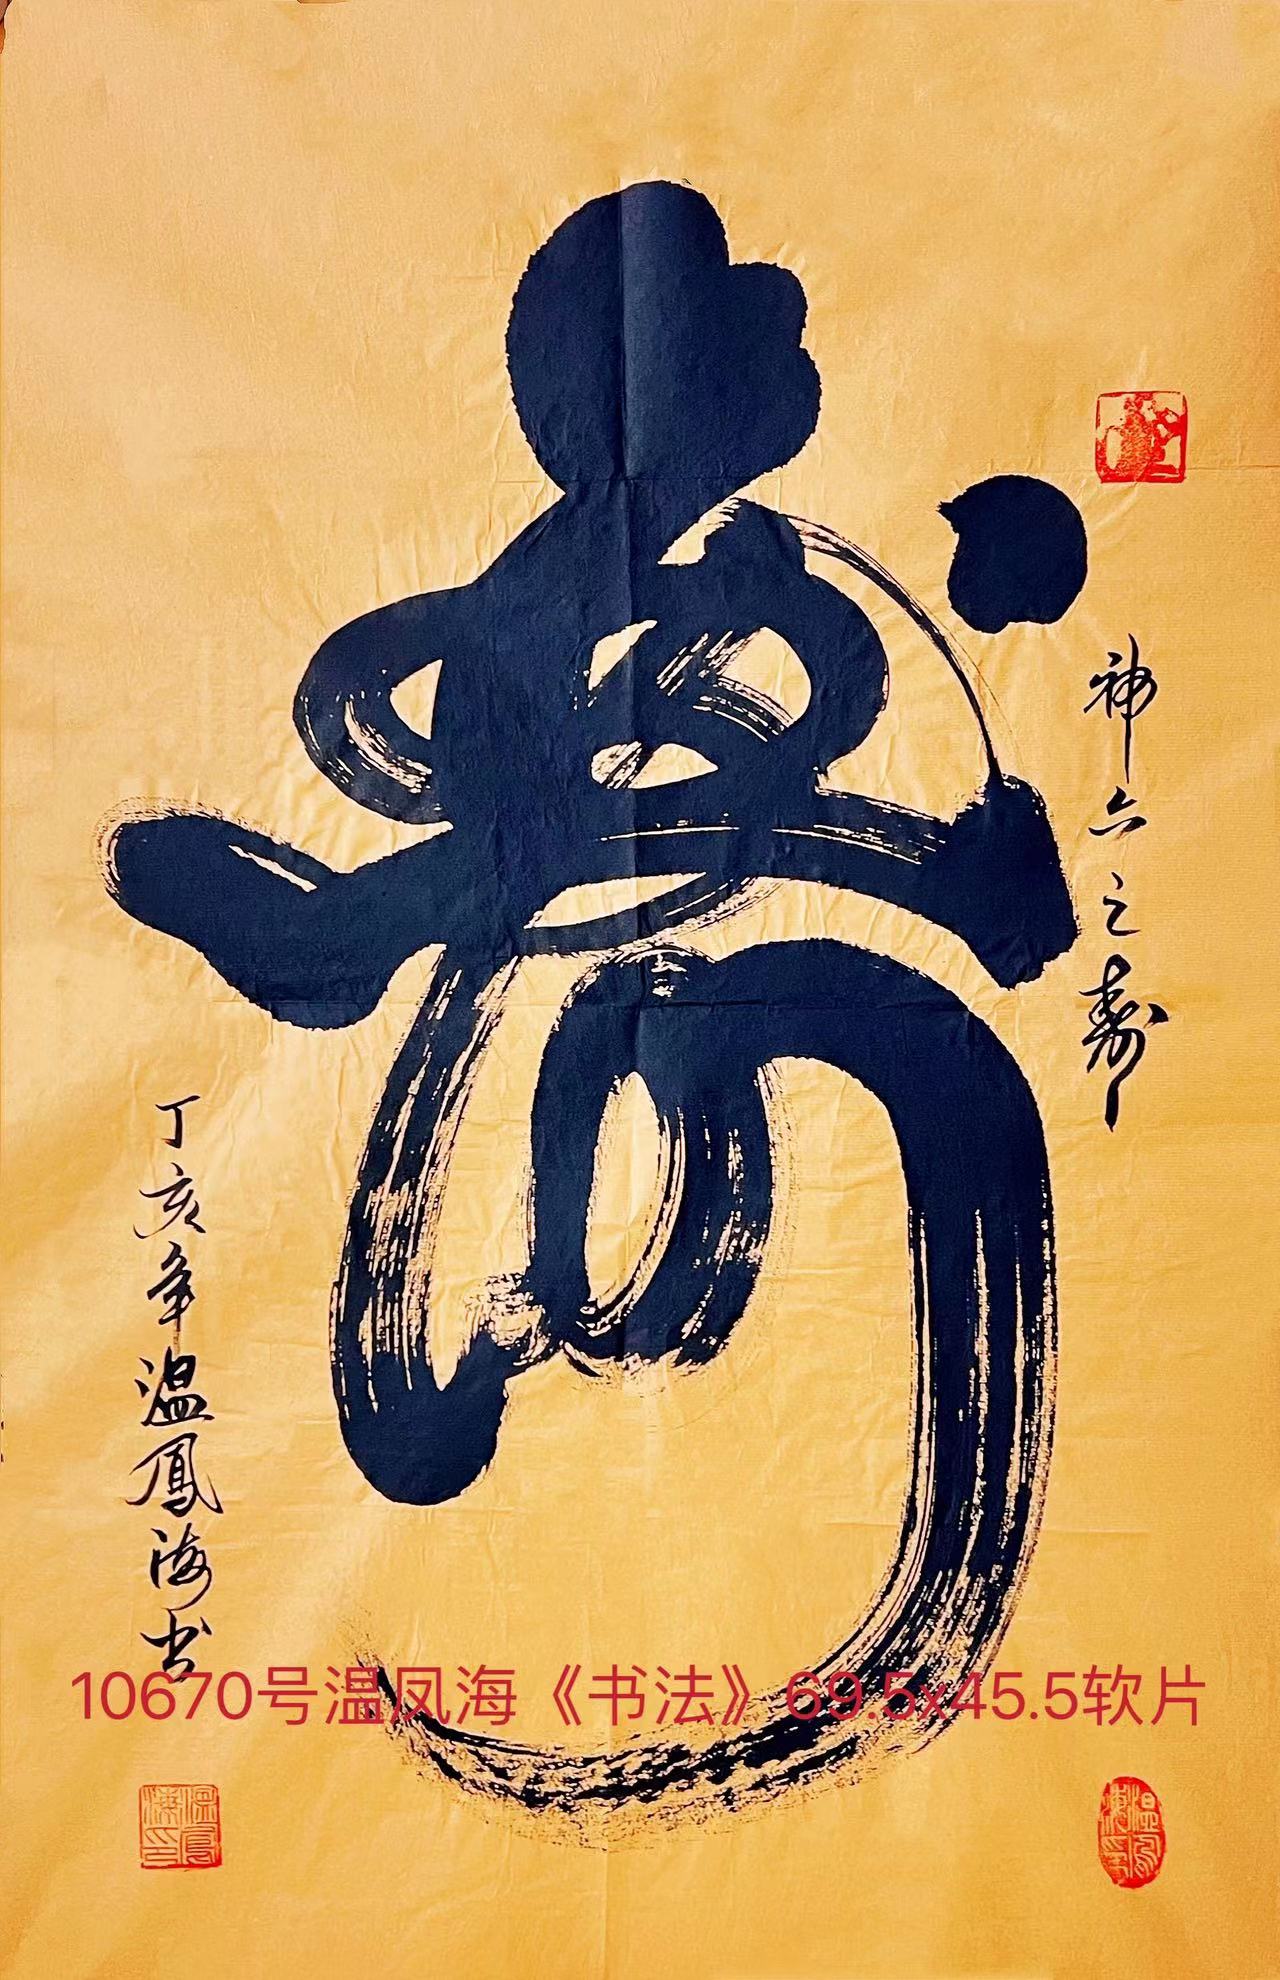 壽
神六之寿
丁亥年温鳳海书
10670号温凤海《书法》69.5x45.5软片
温鳳海印